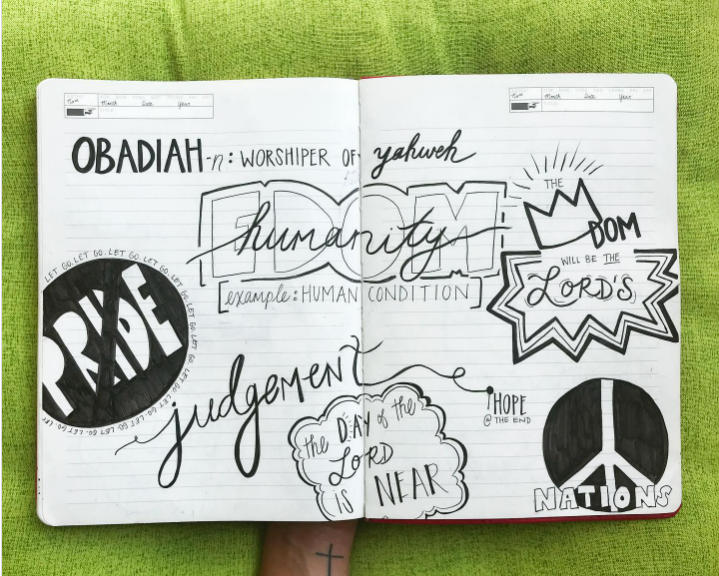 Month Date Year
Month Date Year
OBADIAH-n: WORSHIPER OF yahweh
EDOM
humanity
example: HUMAN CONDITION
LET GO. LET GO. LET GO. LET GO. LET GO. LET GO. LET GO. LET GO. LET GO. LET GO.
PRIDE
THE
DOM
WILL BE THE
LORD'S
judgement
HOPE
@ THE END
the DAY of the
LORD
IS NEAR
NATIONS